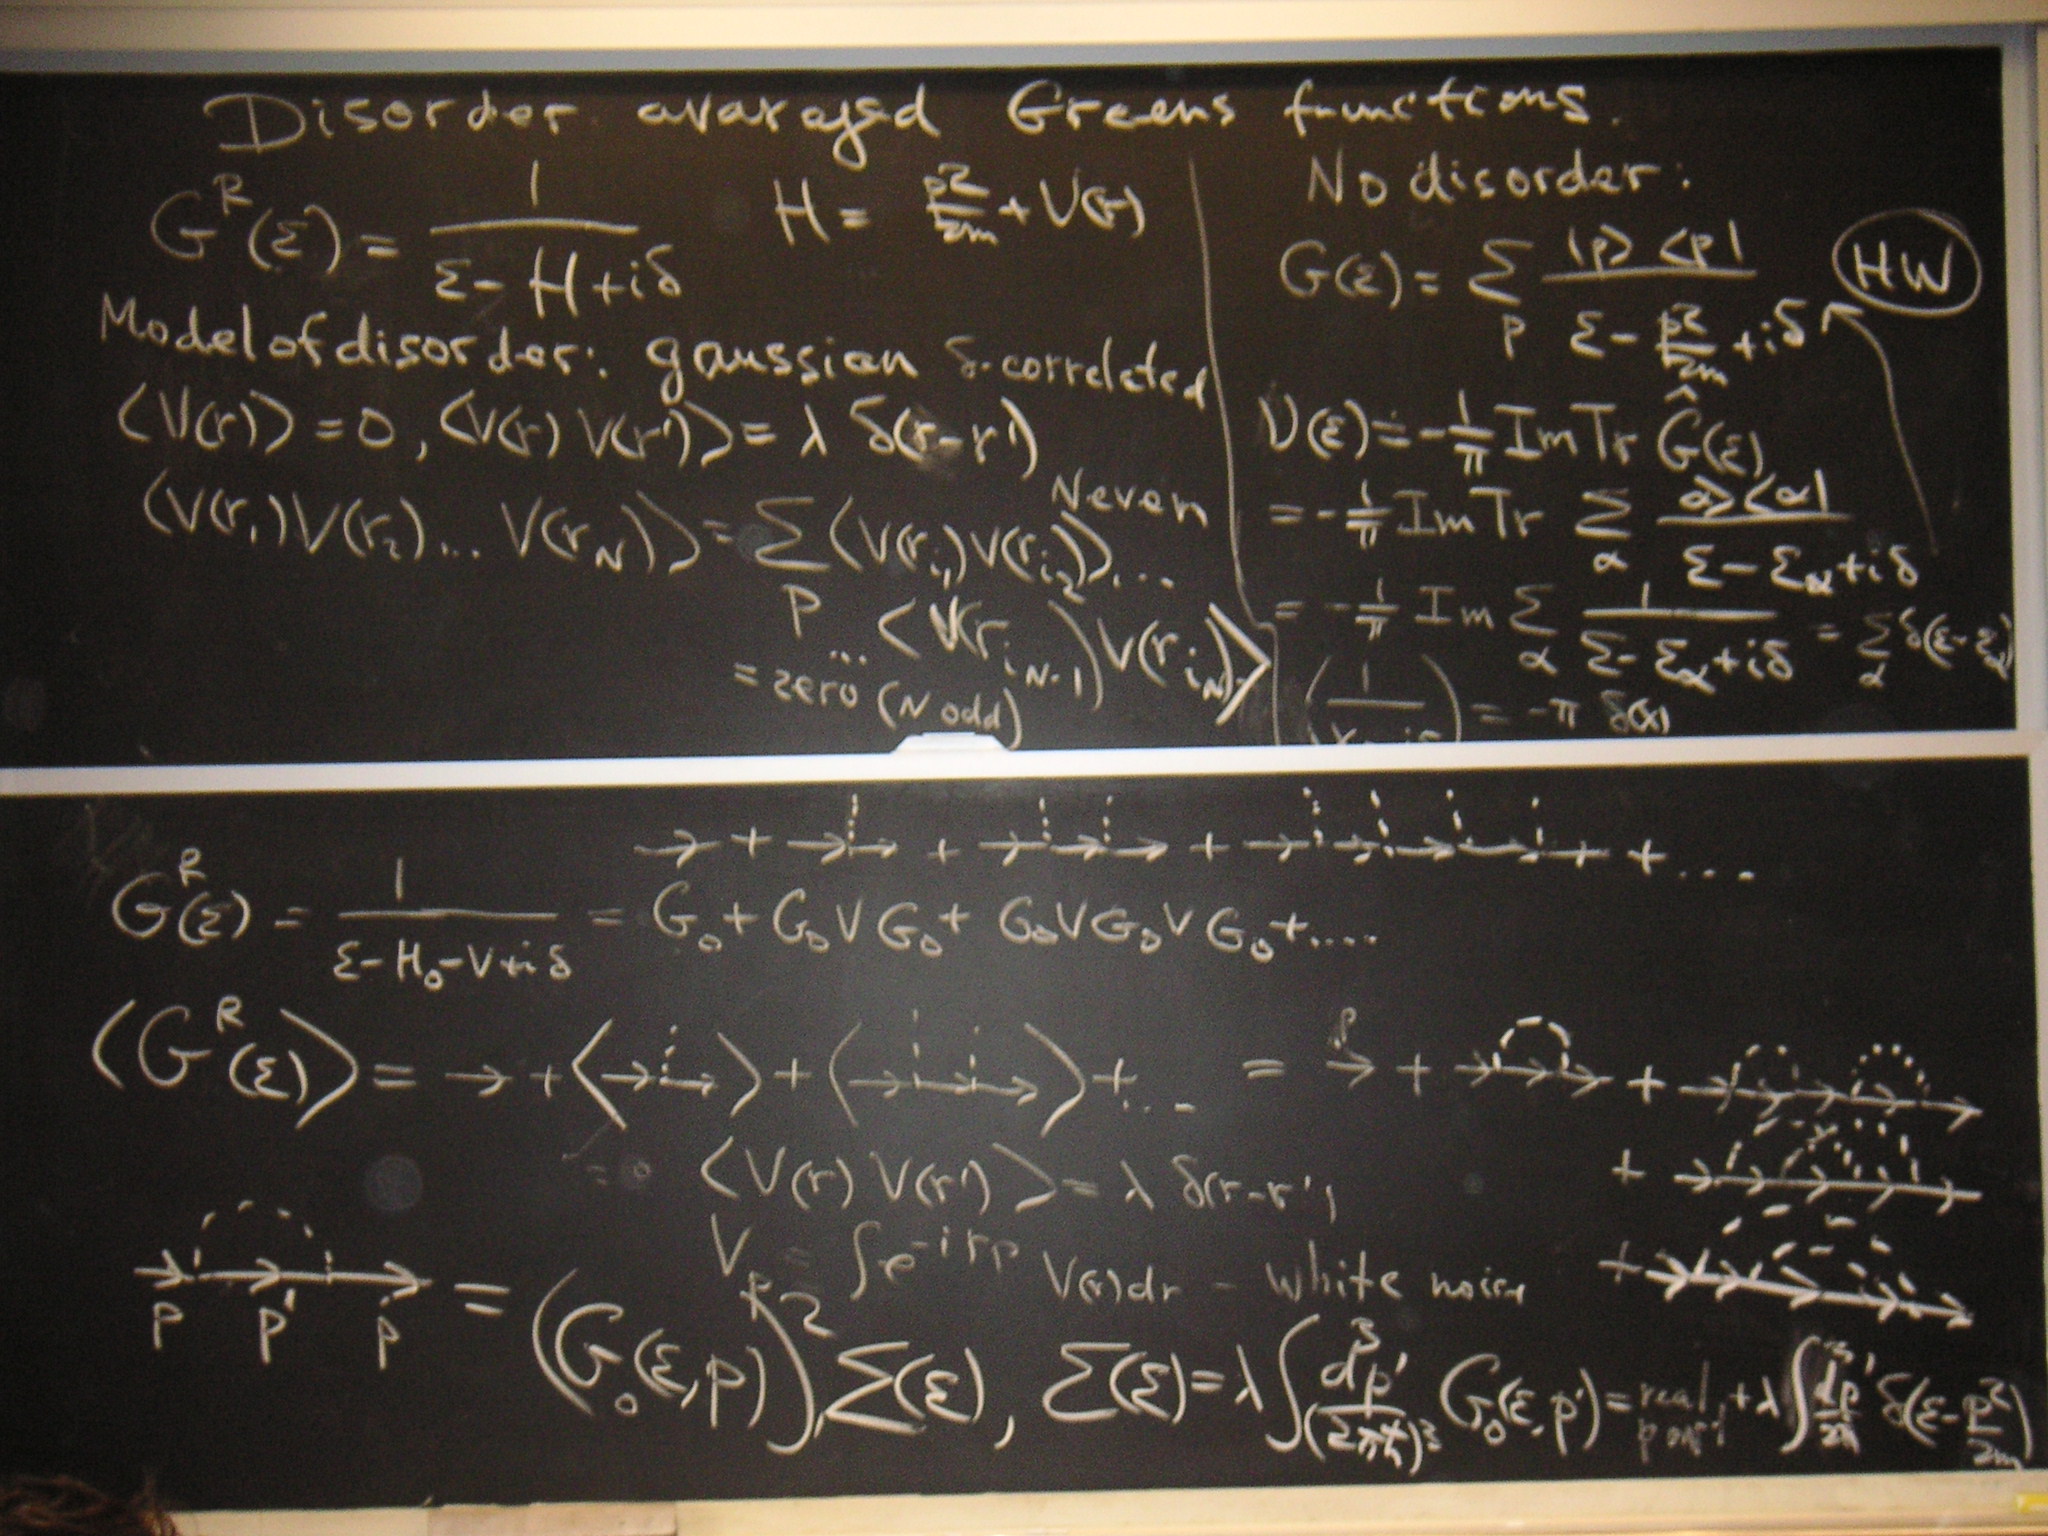 Disorder avaraged Greens functions.
G^R(ε) = 1/(ε - H + iδ)    H = p²/2m + V(r)
Model of disorder: gaussian δ-correlated
⟨V(r)⟩ = 0, ⟨V(r) V(r')⟩ = λ δ(r-r')
⟨V(r₁)V(r₂)... V(r_N)⟩ = Σ_P ⟨V(r_{i₁})V(r_{i₂})⟩... N even
...⟨V(r_{i_{N-1}})V(r_{i_N})⟩
= zero (N odd)
No disorder:
G(ε) = Σ_p |p⟩⟨p| / (ε - p²/2m + iδ)
HW
ν(ε) = -1/π Im Tr Ĝ(ε)
= -1/π Im Tr Σ_α |α⟩⟨α| / (ε - ε_α + iδ)
= -1/π Im Σ_α 1/(ε - ε_α + iδ) = Σ_α δ(ε-ε_α)
= -π δ(x)
→ + → → + → → → + → → → → → + ....
G^R(ε) = 1/(ε - H₀ - V + iδ) = G₀ + G₀VG₀ + G₀VG₀VG₀ + ....
⟨G^R(ε)⟩ = → + ⟨→ →⟩ + ⟨→ → →⟩ + ... = p → + → → → + → → → → →
= 0    ⟨V(r) V(r')⟩ = λ δ(r-r')
V_p = ∫e^{-irp} V(r)dr - white noise
p p' p = (G₀(ε,p))² Σ(ε), Σ(ε) = λ∫ d³p'/(2πħ)³ G₀(ε,p') = real part + λ∫